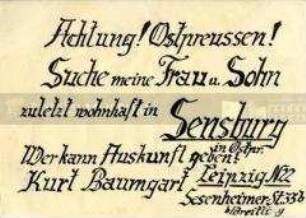 Achtung! Ostpreussen!
Suche meine Frau u. Sohn
zuletzt wohnhaft in Sensburg
in Ostpr.
Wer kann Auskunft geben?
Kurt Baumgart Leipzig N22
Sesenheimer St. 33b